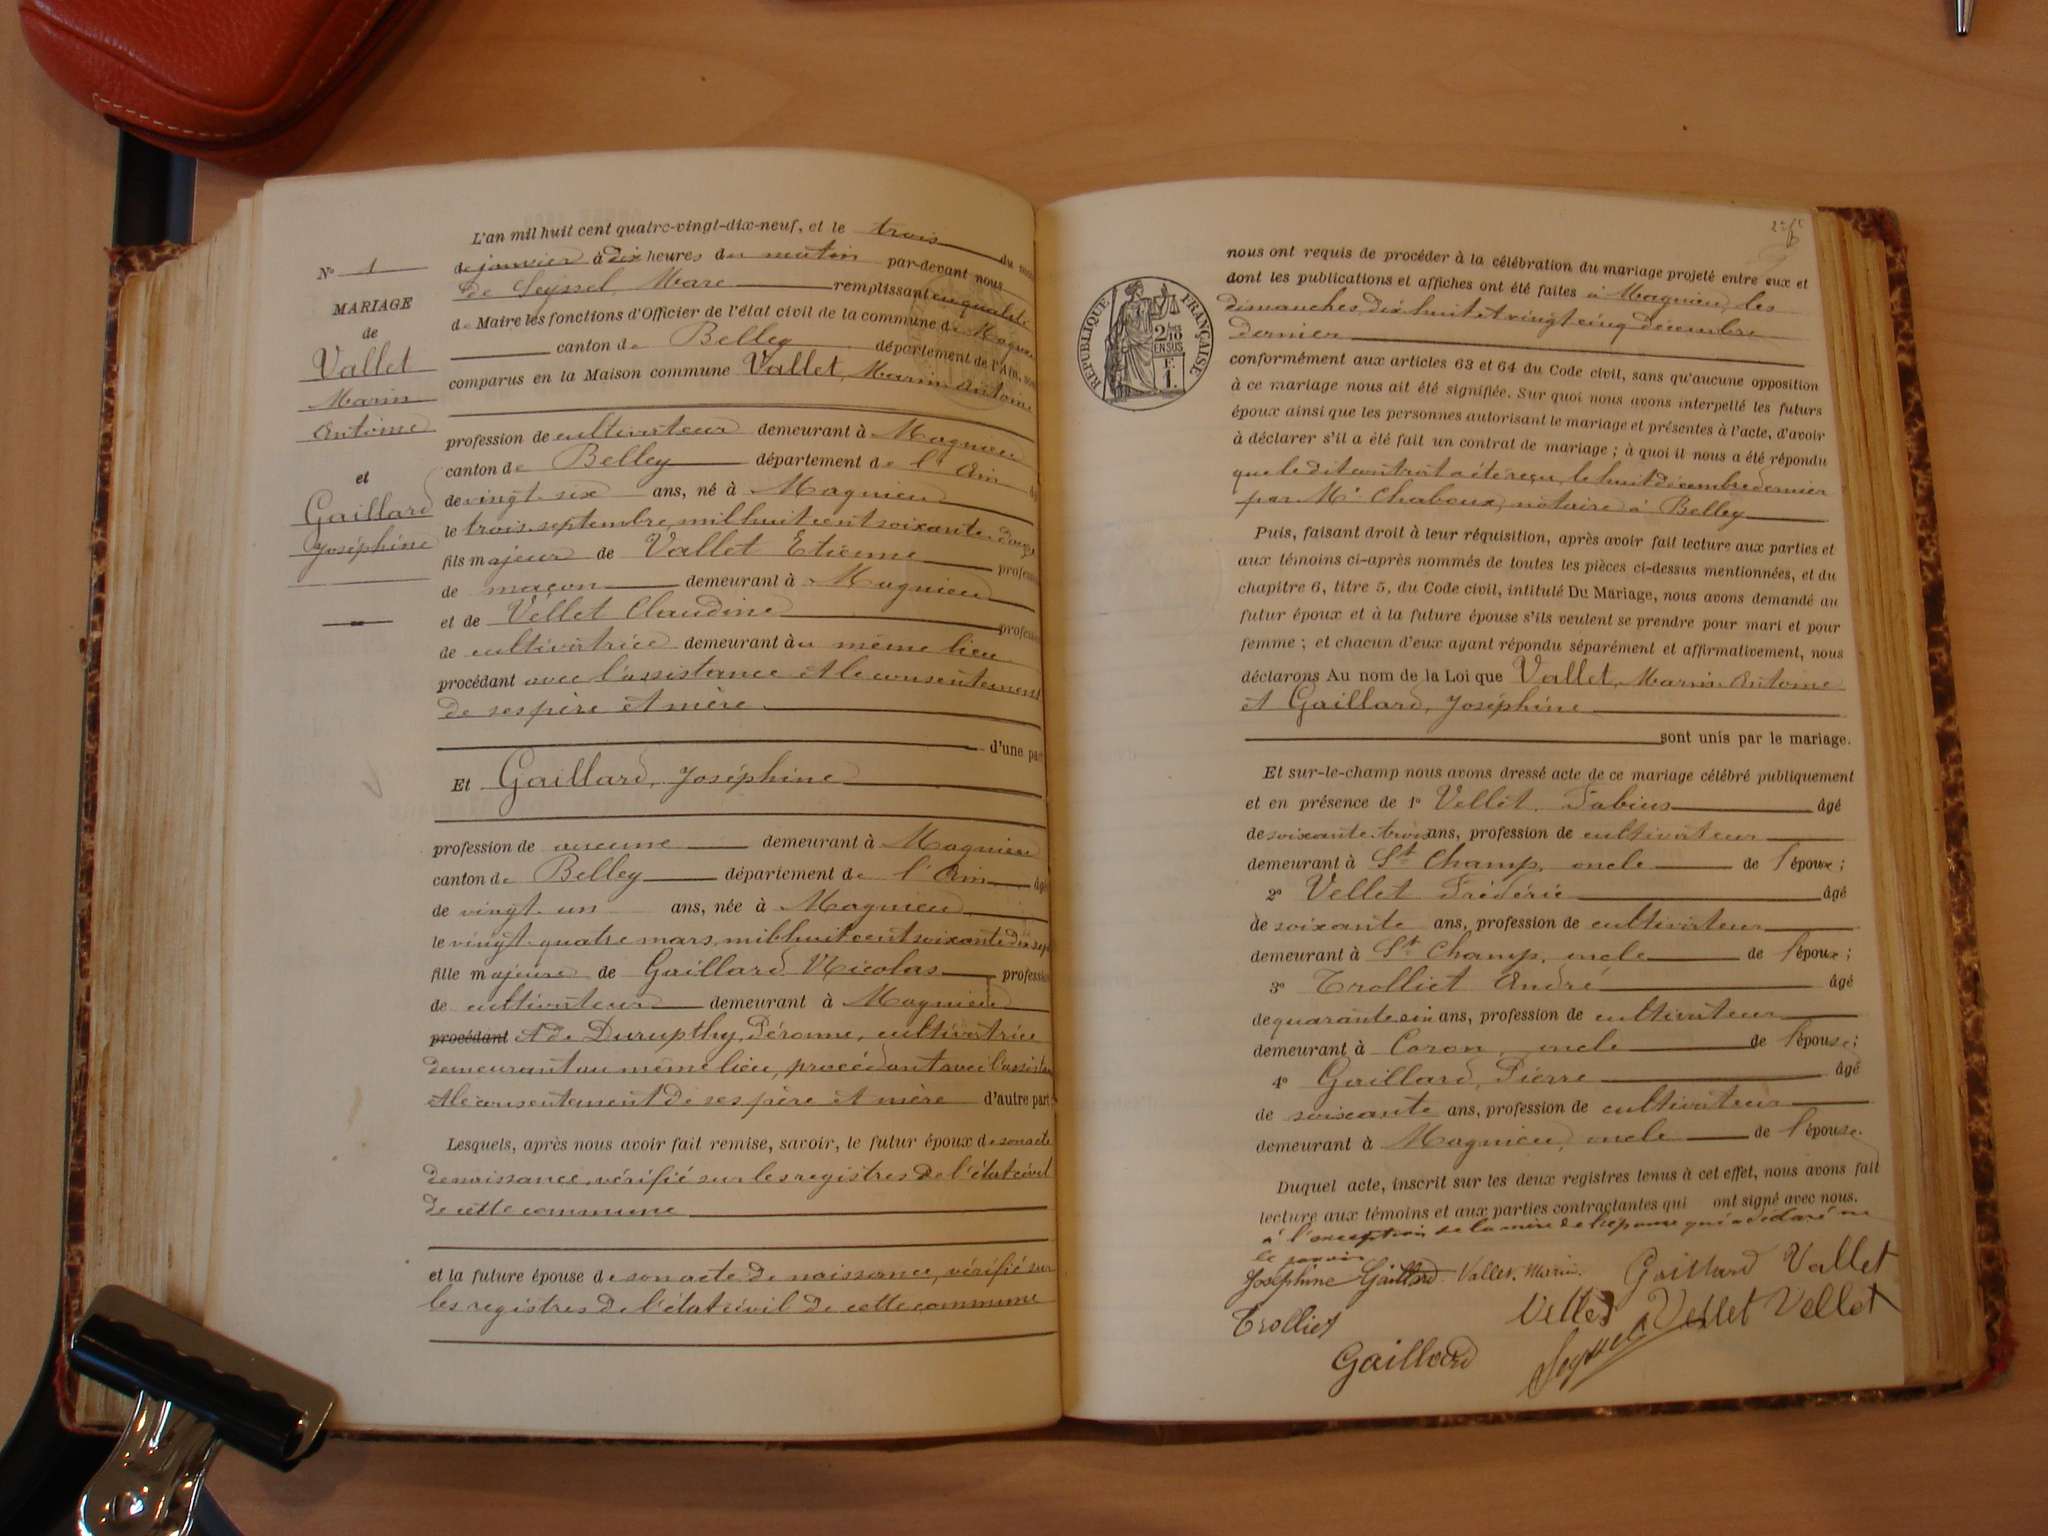 N° 1
MARIAGE
de
Vallet
Marin
Antoine
et
Gaillard
Joséphine
L'an mil huit cent quatre-vingt-dix-neuf, et le trois du mois
de janvier à dix heures du matin par-devant nous
de Seyssel, Marc remplissant en qualité
de Maire les fonctions d'Officier de l'état civil de la commune de Magnieu
canton de Belley département de l'Ain, sont
comparus en la Maison commune Vallet, Marin Antoine
profession de cultivateur demeurant à Magnieu
canton de Belley département de l'Ain âgé
de vingt-six ans, né à Magnieu
le trois septembre mil huit cent soixante-douze
fils majeur de Vallet Etienne profession
de maçon demeurant à Magnieu
et de Vellet Claudine profession
de cultivatrice demeurant au même lieu
procédant avec l'assistance et le consentement
de ses père et mère
d'une part
Et Gaillard, Joséphine
profession de aucune demeurant à Magnieu
canton de Belley département de l'Ain âgé
de vingt-un ans, née à Magnieu
le vingt-quatre mars mil huit cent soixante-dix-sept
fille majeure de Gaillard Nicolas profession
de cultivateur demeurant à Magnieu
procédant et de Durupthy, Péronne, cultivatrice
demeurant au même lieu, procédant avec l'assistance
et le consentement de ses père et mère d'autre part
Lesquels, après nous avoir fait remise, savoir, le futur époux de son acte
de naissance, vérifié sur les registres de l'état civil
de cette commune
et la future épouse de son acte de naissance, vérifié sur
les registres de l'état civil de cette commune
nous ont requis de procéder à la célébration du mariage projeté entre eux et
dont les publications et affiches ont été faites à Magnieu, les
dimanches dix-huit et vingt-cinq décembre
dernier
RÉPUBLIQUE FRANÇAISE
2/10
EN SUS
F.
1.
conformément aux articles 63 et 64 du Code civil, sans qu'aucune opposition
à ce mariage nous ait été signifiée. Sur quoi nous avons interpellé les futurs
époux ainsi que les personnes autorisant le mariage et présentes à l'acte, d'avoir
à déclarer s'il a été fait un contrat de mariage ; à quoi il nous a été répondu
que le dit contrat a été reçu, le huit décembre dernier
par Me Chaboux, notaire à Belley
Puis, faisant droit à leur réquisition, après avoir fait lecture aux parties et
aux témoins ci-après nommés de toutes les pièces ci-dessus mentionnées, et du
chapitre 6, titre 5, du Code civil, intitulé Du Mariage, nous avons demandé au
futur époux et à la future épouse s'ils veulent se prendre pour mari et pour
femme ; et chacun d'eux ayant répondu séparément et affirmativement, nous
déclarons Au nom de la Loi que Vallet, Marin Antoine
et Gaillard, Joséphine
sont unis par le mariage.
Et sur-le-champ nous avons dressé acte de ce mariage célébré publiquement
et en présence de 1° Vellet Fabius âgé
de soixante-trois ans, profession de cultivateur
demeurant à St Champ, oncle de l'époux ;
2° Vellet Frédéric âgé
de soixante ans, profession de cultivateur
demeurant à St Champ, oncle de l'époux ;
3° Trolliet André âgé
de quarante ans, profession de cultivateur
demeurant à Coron, oncle de l'épouse ;
4° Gaillard, Pierre âgé
de soixante ans, profession de cultivateur
demeurant à Magnieu, oncle de l'épouse
Duquel acte, inscrit sur les deux registres tenus à cet effet, nous avons fait
lecture aux témoins et aux parties contractantes qui ont signé avec nous.
à l'exception de la mère de l'épouse qui a déclaré ne
le savoir
Joséphine Gaillard Vallet. Marin. Gaillard Vallet
Trolliet Vellet Vellet Vellet
Gaillard